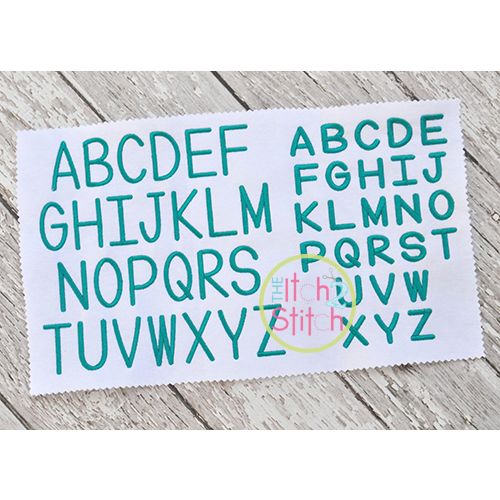 ABCDEF
GHIJKLM
NOPQRS
TUVWXYZ
ABCDE
FGHIJ
KLMNO
PQRST
UVW
XYZ
THE
Itch 2
Stitch